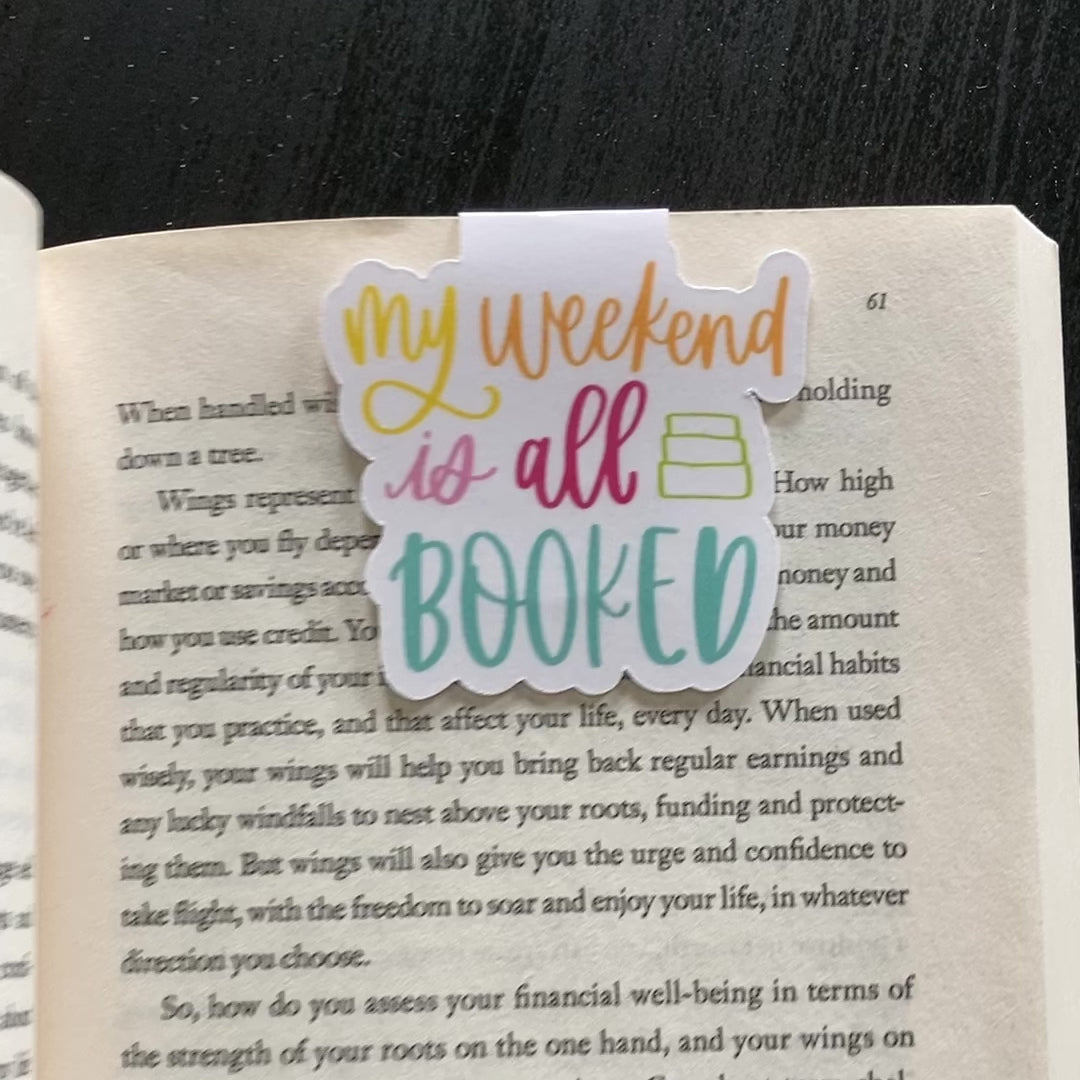 61
my weekend
is all
BOOKED
When handled holding
down a tree.
Wings represent How high
or where you fly money
market or savings money and
how you use credit. the amount
and regularity of your habits
that you practice, and that affect your life, every day. When used
wisely, your wings will help you bring back regular earnings and
any lucky windfalls to nest above your roots, funding and protect-
ing them. But wings will also give you the urge and confidence to
take flight, with the freedom to soar and enjoy your life, in whatever
direction you choose.
So, how do you assess your financial well-being in terms of
the strength of your roots on the one hand, and your wings on